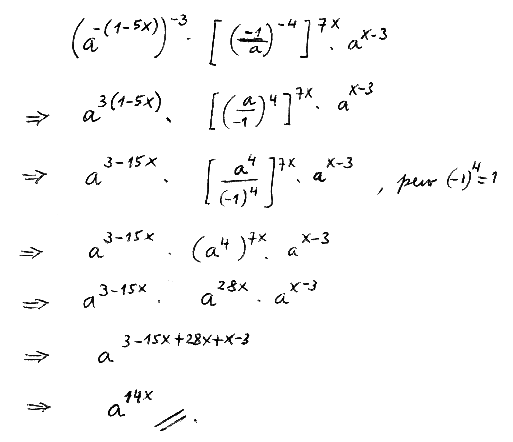 (a^{-(1-5x)})^{-3} · [(\frac{-1}{a})^{-4}]^{7x} · a^{x-3}
⇒ a^{3(1-5x)} · [(\frac{a}{-1})^{4}]^{7x} · a^{x-3}
⇒ a^{3-15x} · [\frac{a^{4}}{(-1)^{4}}]^{7x} · a^{x-3} , pero (-1)^{4}=1
⇒ a^{3-15x} · (a^{4})^{7x} · a^{x-3}
⇒ a^{3-15x} · a^{28x} · a^{x-3}
⇒ a^{3-15x+28x+x-3}
⇒ a^{14x} //.